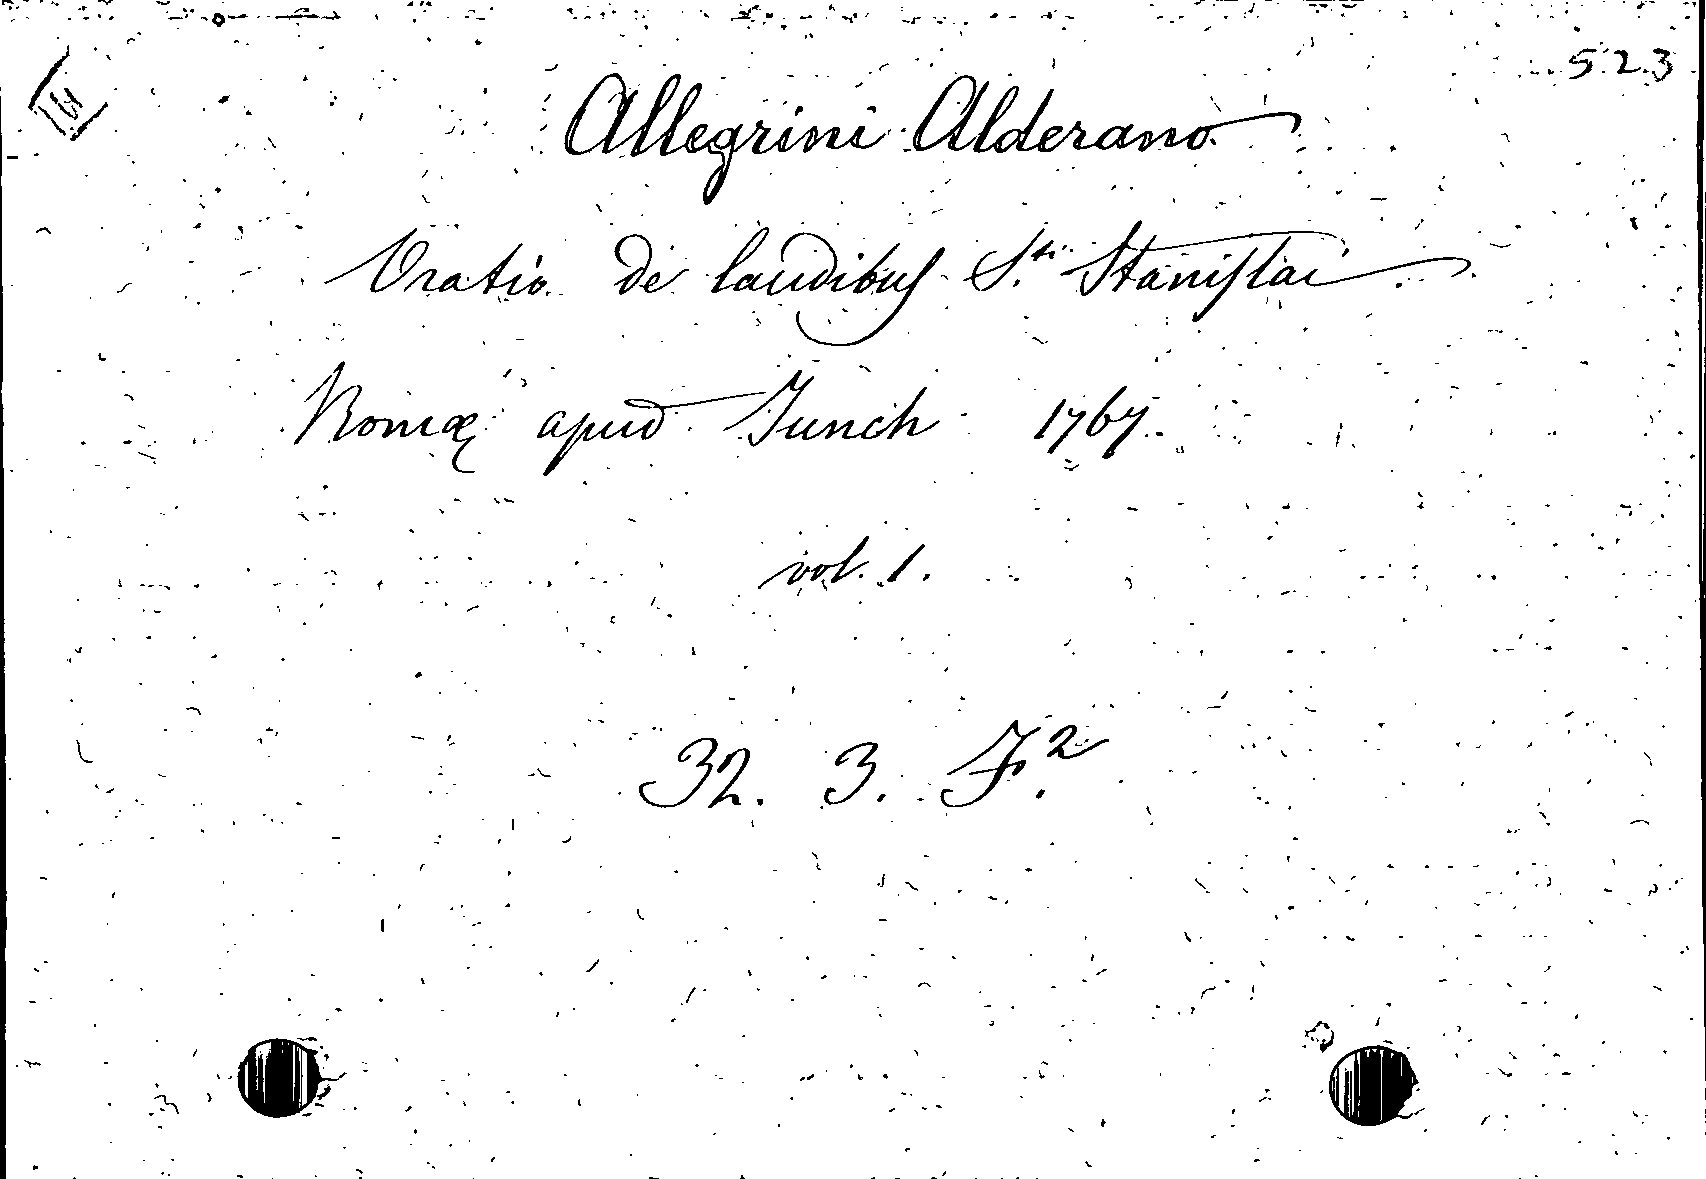 523
Allegrini Alderano
Oratio de laudibus S.ti Stanislai
Romæ apud Junch 1767.
vol. 1.
32. 3. F.2